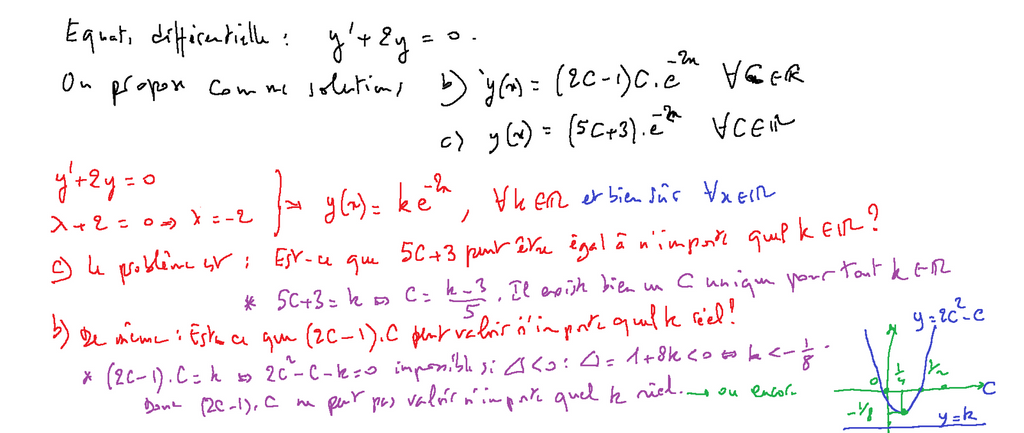 Equat, différentielle : y' + 2y = 0.
On propose comme solutions b) y(x) = (2C-1)C.e^{-2x} ∀C∈ℝ
c) y(x) = (5C+3).e^{-2x} ∀C∈ℝ
y'+2y = 0
λ+2 = 0 ⇒ λ = -2 } ⇒ y(x) = k e^{-2x}, ∀k∈ℝ et bien sûr ∀x∈ℝ
c) le problème est : Est-ce que 5C+3 peut être égal à n'importe quel k∈ℝ ?
* 5C+3 = k ⇔ C = (k-3)/5. Il existe bien un C unique pour tout k∈ℝ
b) De même : Est-ce que (2C-1).C peut valoir n'importe quel k réel !
* (2C-1).C = k ⇔ 2C²-C-k=0 impossible si Δ<0 : Δ = 1+8k<0 ⇔ k<-1/8.
Donc (2C-1).C ne peut pas valoir n'importe quel k réel. → ou encore
y = 2C²-C
0 1/4 1/2 C
-1/8
y = k